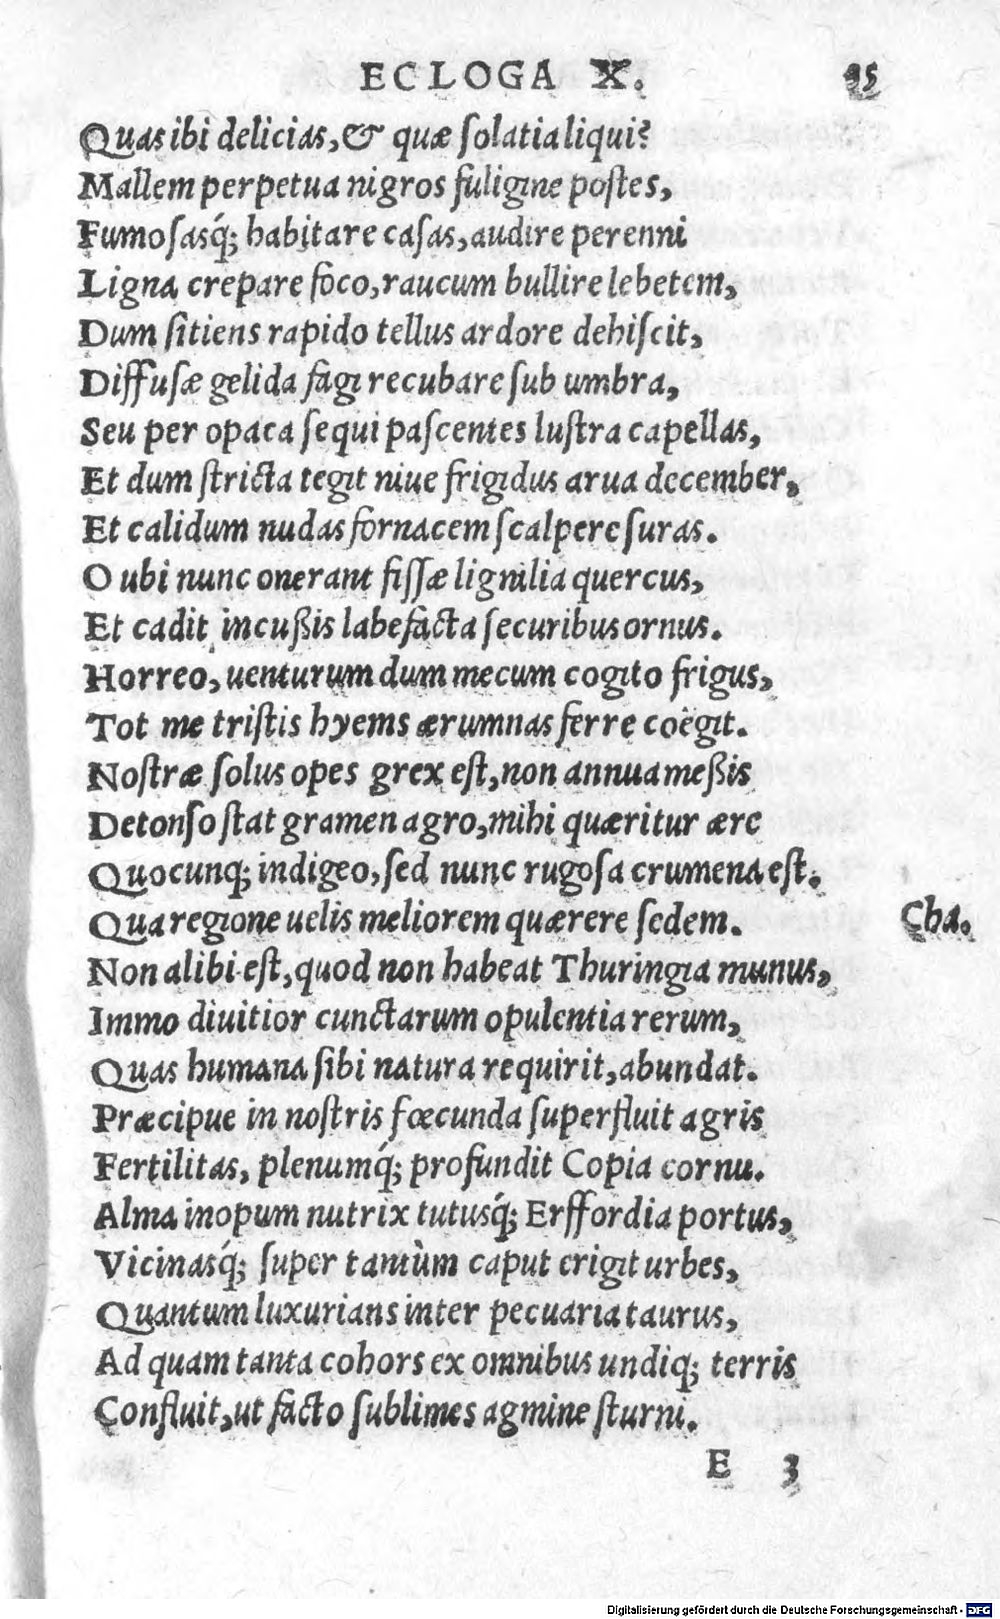 ECLOGA X. 35
Quas ibi delicias, & quæ ſolatia liqui?
Mallem perpetua nigros fuligine poſtes,
Fumoſasq́; habitare caſas, audire perenni
Ligna crepare foco, raucum bullire lebetem,
Dum ſitiens rapido tellus ardore dehiſcit,
Diffuſæ gelida fagi recubare ſub umbra,
Seu per opaca ſequi paſcentes luſtra capellas,
Et dum ſtricta tegit niue frigidus arua december,
Et calidum nudas fornacem ſcalpere ſuras.
O ubi nunc onerant fiſſæ lignilia quercus,
Et cadit incußis labefacta ſecuribus ornus.
Horreo, uenturum dum mecum cogito frigus,
Tot me triſtis hyems ærumnas ferre coëgit.
Noſtræ ſolus opes grex eſt, non annua meßis
Detonſo ſtat gramen agro, mihi quæritur ære
Quocunq; indigeo, ſed nunc rugoſa crumena eſt.
Qua regione uelis meliorem quærere ſedem. Cha.
Non alibi eſt, quod non habeat Thuringia munus,
Immo diuitior cunctarum opulentia rerum,
Quas humana ſibi natura requirit, abundat.
Præcipue in noſtris fœcunda ſuperfluit agris
Fertilitas, plenumq́; profundit Copia cornu.
Alma inopum nutrix tutusq́; Erffordia portus,
Vicinasq́; ſuper tantùm caput erigit urbes,
Quantum luxurians inter pecuaria taurus,
Ad quam tanta cohors ex omnibus undiq; terris
Confluit, ut facto ſublimes agmine ſturni.
E 3
Digitalisierung gefördert durch die Deutsche Forschungsgemeinschaft - DFG